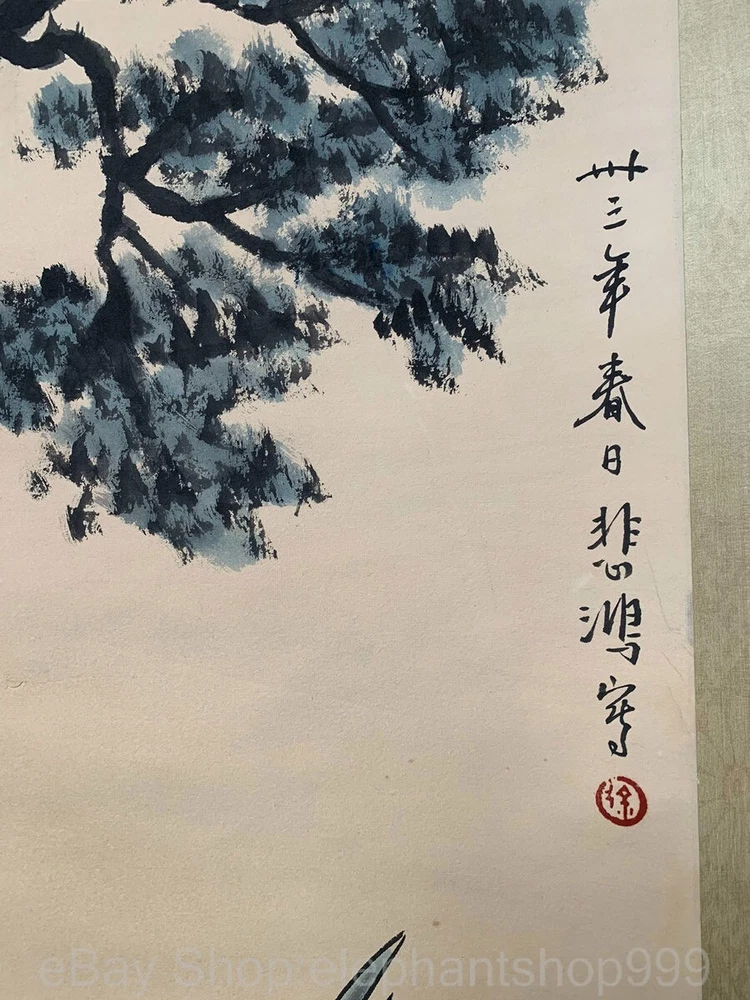 卅三年春日悲鴻寫
徐
eBay Shop elephantshop999